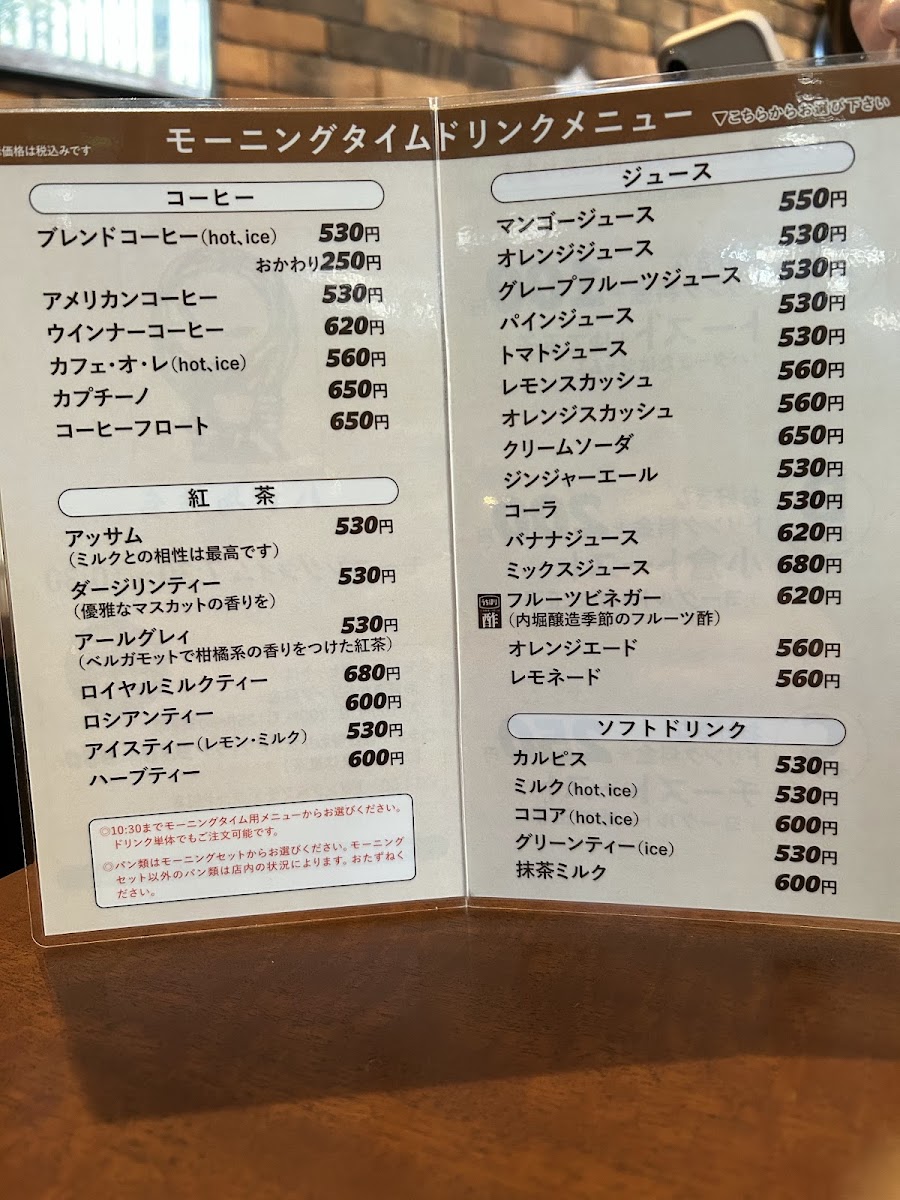 価格は税込みです
モーニングタイムドリンクメニュー
▽こちらからお選び下さい
コーヒー
ブレンドコーヒー(hot、ice) 530円
おかわり250円
アメリカンコーヒー 530円
ウインナーコーヒー 620円
カフェ・オ・レ(hot、ice) 560円
カプチーノ 650円
コーヒーフロート 650円
紅 茶
アッサム 530円
(ミルクとの相性は最高です)
ダージリンティー 530円
(優雅なマスカットの香りを)
アールグレィ 530円
(ベルガモットで柑橘系の香りをつけた紅茶)
ロイヤルミルクティー 680円
ロシアンティー 600円
アイスティー(レモン・ミルク) 530円
ハーブティー 600円
◎10:30までモーニングタイム用メニューからお選びください。
ドリンク単体でもご注文可能です。
◎パン類はモーニングセットからお選びください。モーニング
セット以外のパン類は店内の状況によります。おたずねく
ださい。
ジュース
マンゴージュース 550円
オレンジジュース 530円
グレープフルーツジュース 530円
パインジュース 530円
トマトジュース 530円
レモンスカッシュ 560円
オレンジスカッシュ 560円
クリームソーダ 650円
ジンジャーエール 530円
コーラ 530円
バナナジュース 620円
ミックスジュース 680円
酢 フルーツビネガー 620円
(内堀醸造季節のフルーツ酢)
オレンジエード 560円
レモネード 560円
ソフトドリンク
カルピス 530円
ミルク(hot、ice) 530円
ココア(hot、ice) 600円
グリーンティー(ice) 530円
抹茶ミルク 600円